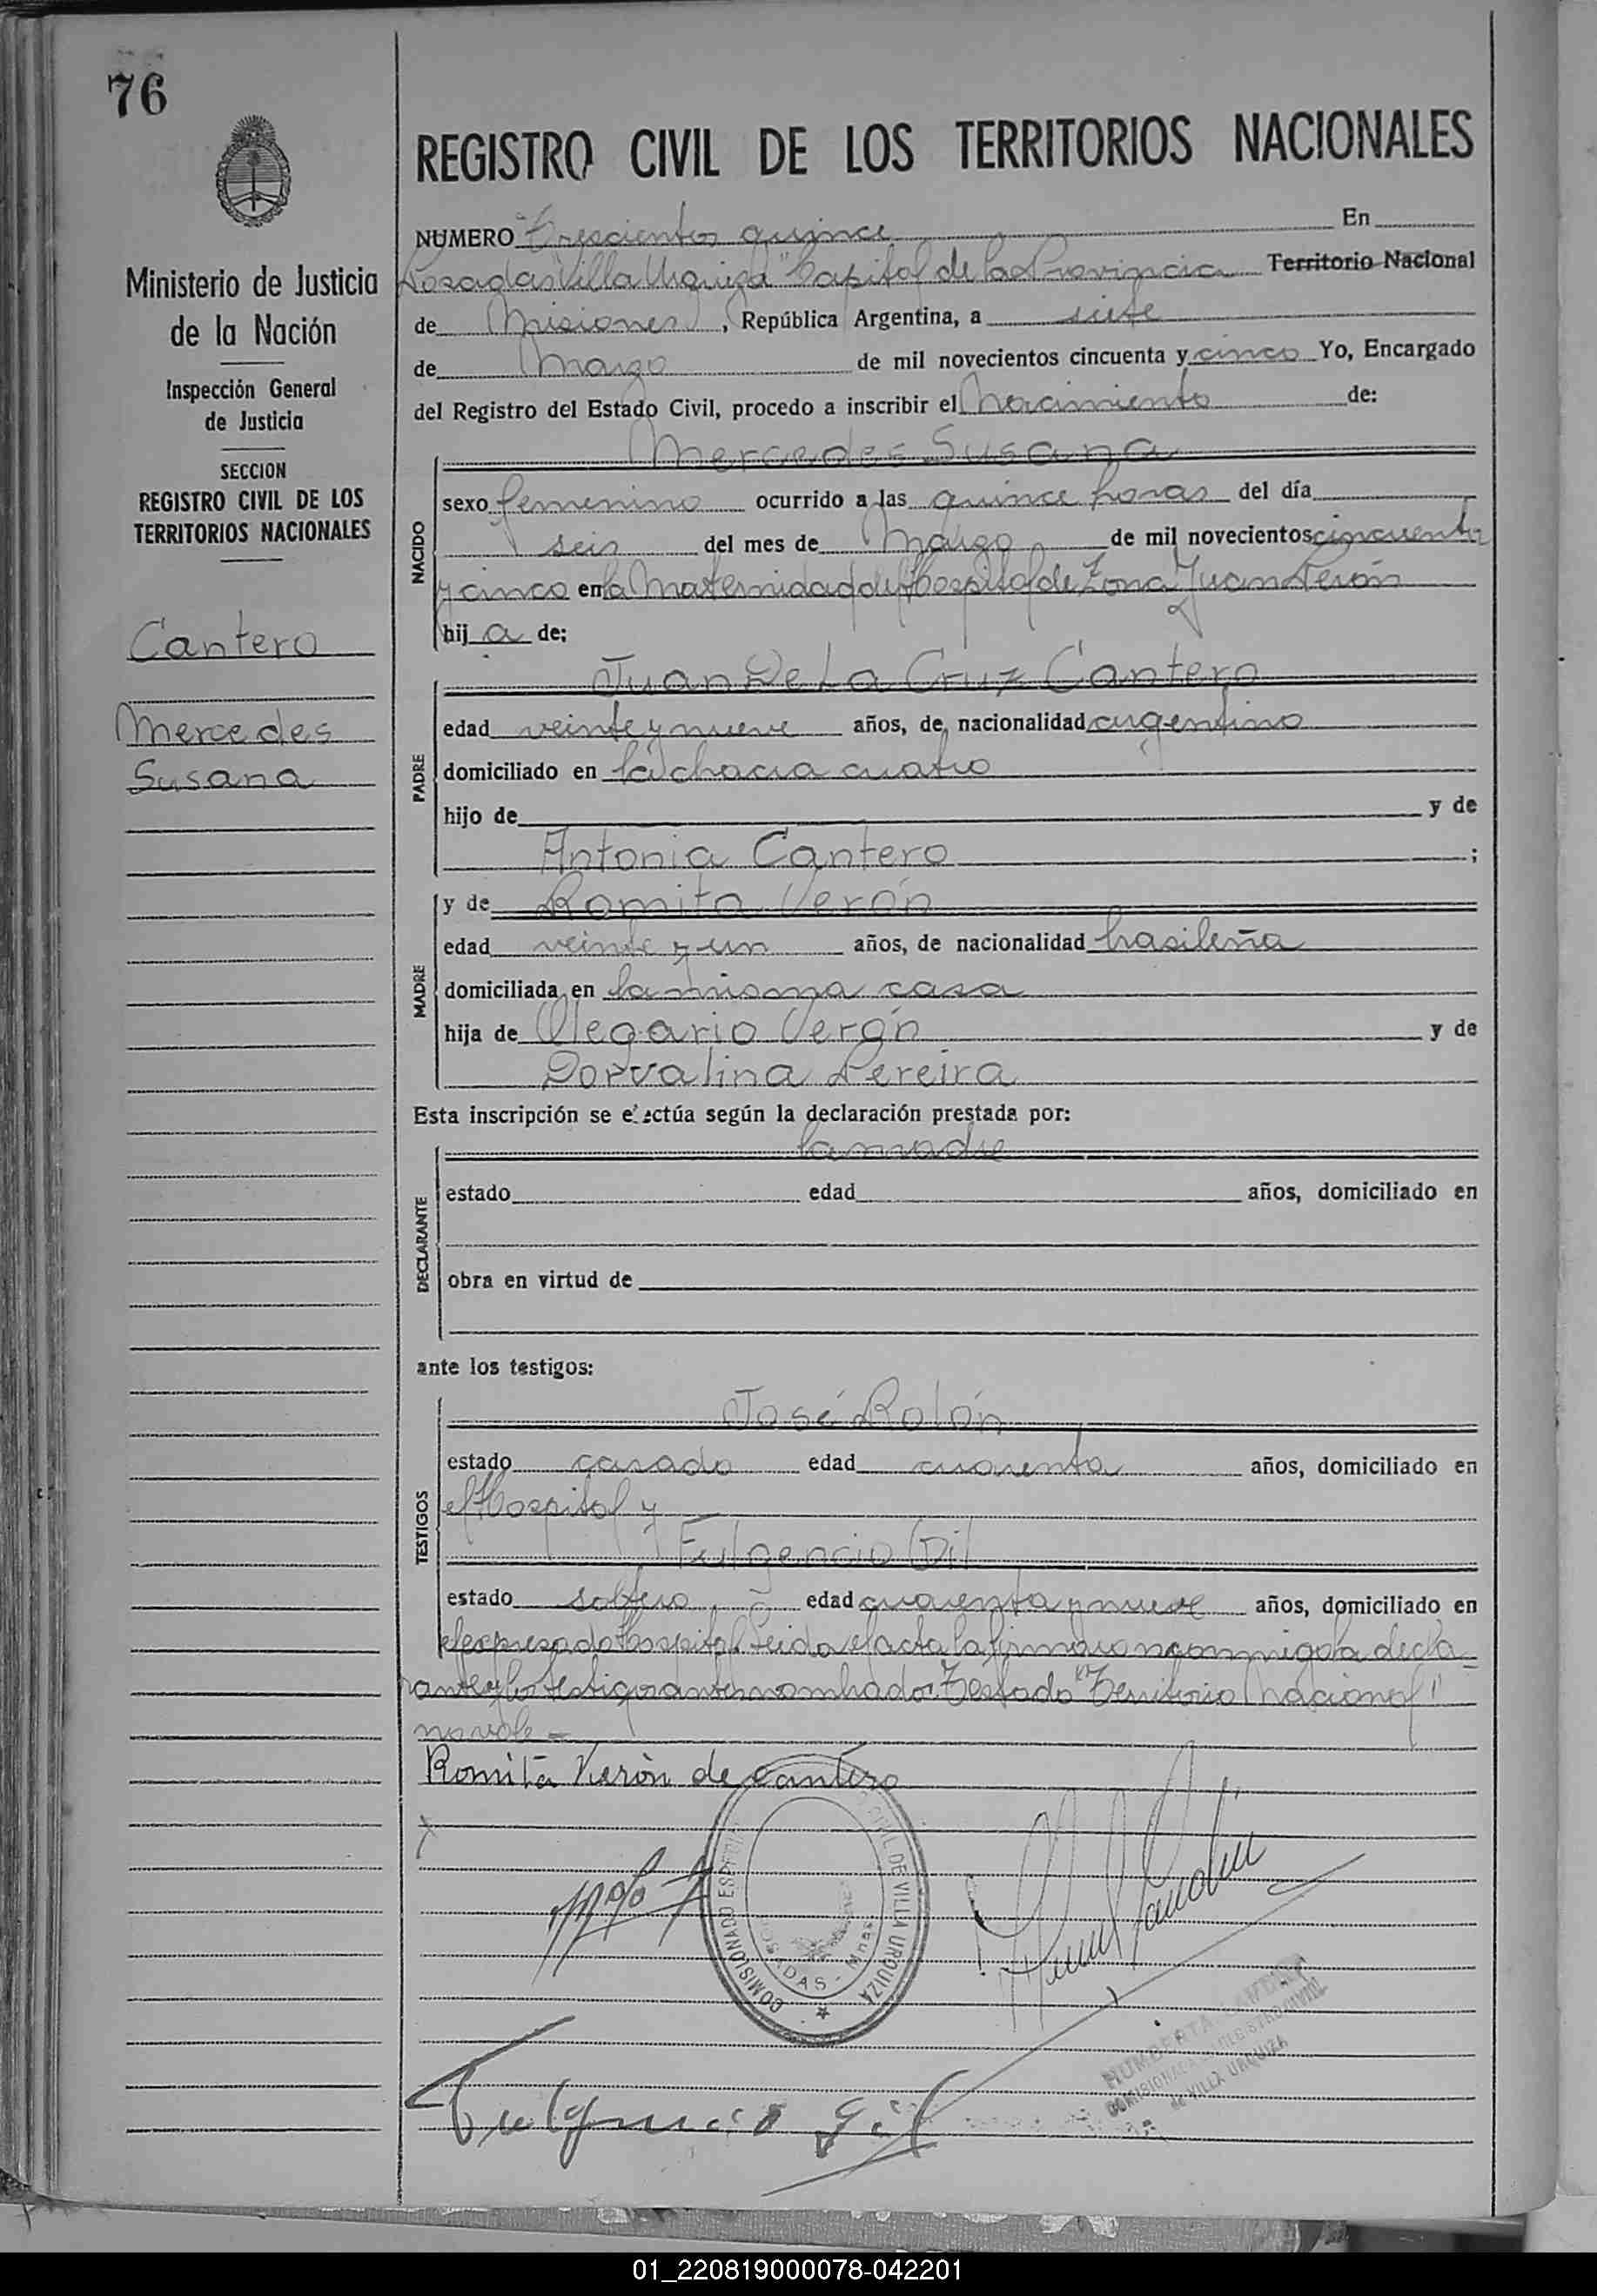 76
Ministerio de Justicia
de la Nación
Inspección General
de Justicia
SECCION
REGISTRO CIVIL DE LOS
TERRITORIOS NACIONALES
Cantero
Mercedes
Susana
REGISTRO CIVIL DE LOS TERRITORIOS NACIONALES
NUMERO Trescientos quince En
Posadas "Villa Urquiza" Capital de la Provincia Territorio Nacional
de Misiones, República Argentina, a siete
de Marzo de mil novecientos cincuenta y cinco Yo, Encargado
del Registro del Estado Civil, procedo a inscribir el Nacimiento de:
Mercedes Susana
NACIDO
sexo femenino ocurrido a las quince horas del día
seis del mes de Marzo de mil novecientos cincuenta
y cinco en la Maternidad del Hospital de Zona Juan Perón
hij a de:
Juan De La Cruz Cantero
PADRE
edad veinte y nueve años, de nacionalidad argentino
domiciliado en la chacra cuatro
hijo de y de
Antonia Cantero ;
MADRE
y de Romita Verón
edad veinte y un años, de nacionalidad brasileña
domiciliada en la misma casa
hija de Olegario Verón y de
Dorvalina Pereira
Esta inscripción se efectúa según la declaración prestada por:
la madre
DECLARANTE
estado edad años, domiciliado en
obra en virtud de
ante los testigos:
José Rolón
TESTIGOS
estado casado edad cuarenta años, domiciliado en
el Hospital y
Fulgencio Gil
estado soltero edad cuarenta y nueve años, domiciliado en
el expresado Hospital. Leida el acta la firmaron conmigo la decla-
rante y los testigos antes nombrados. Testado "Territorio Nacional"
no vale =
Romita Verón de Cantero
COMISIONADO ESPECIAL CIVIL DE VILLA URQUIZA
POSADAS - Mnes
REGISTRO CIVIL
de VILLA URQUIZA
Fulgencio Gil
01_220819000078-042201